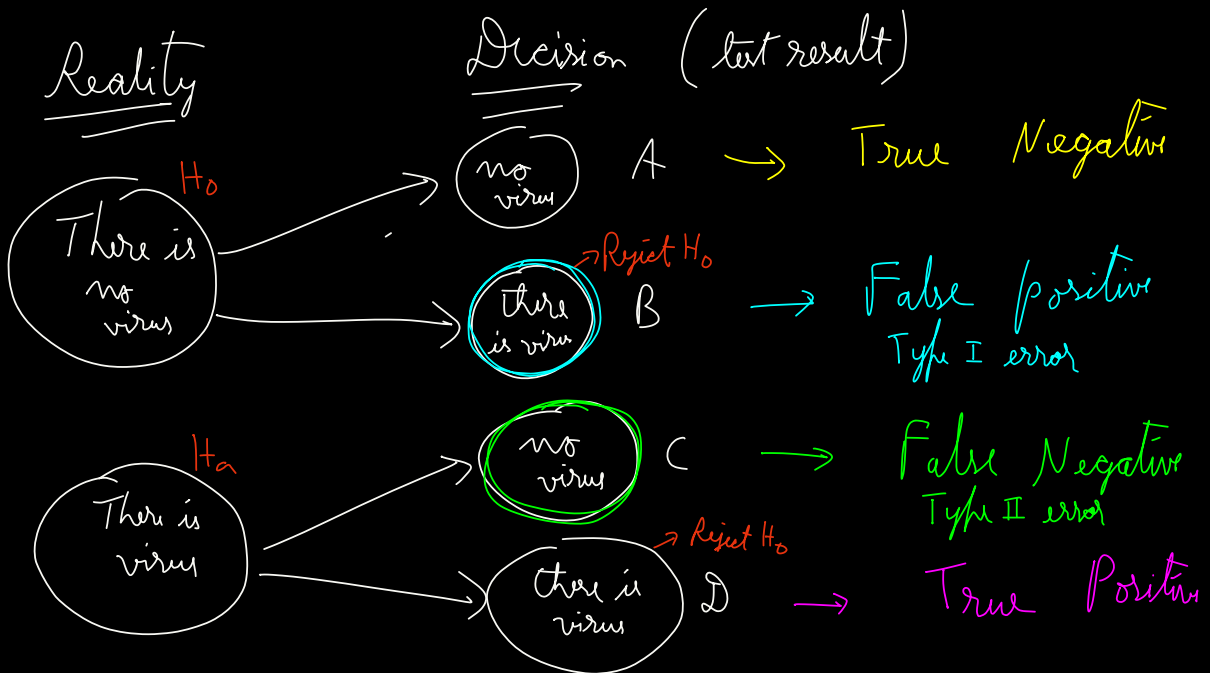 Reality
Decision (test result)
H0
There is
no
virus
no
virus
A
True Negative
Reject H0
there
is virus
B
False positive
Type I error
Ha
There is
virus
no
virus
C
False Negative
Type II error
Reject H0
there is
virus
D
True Positive